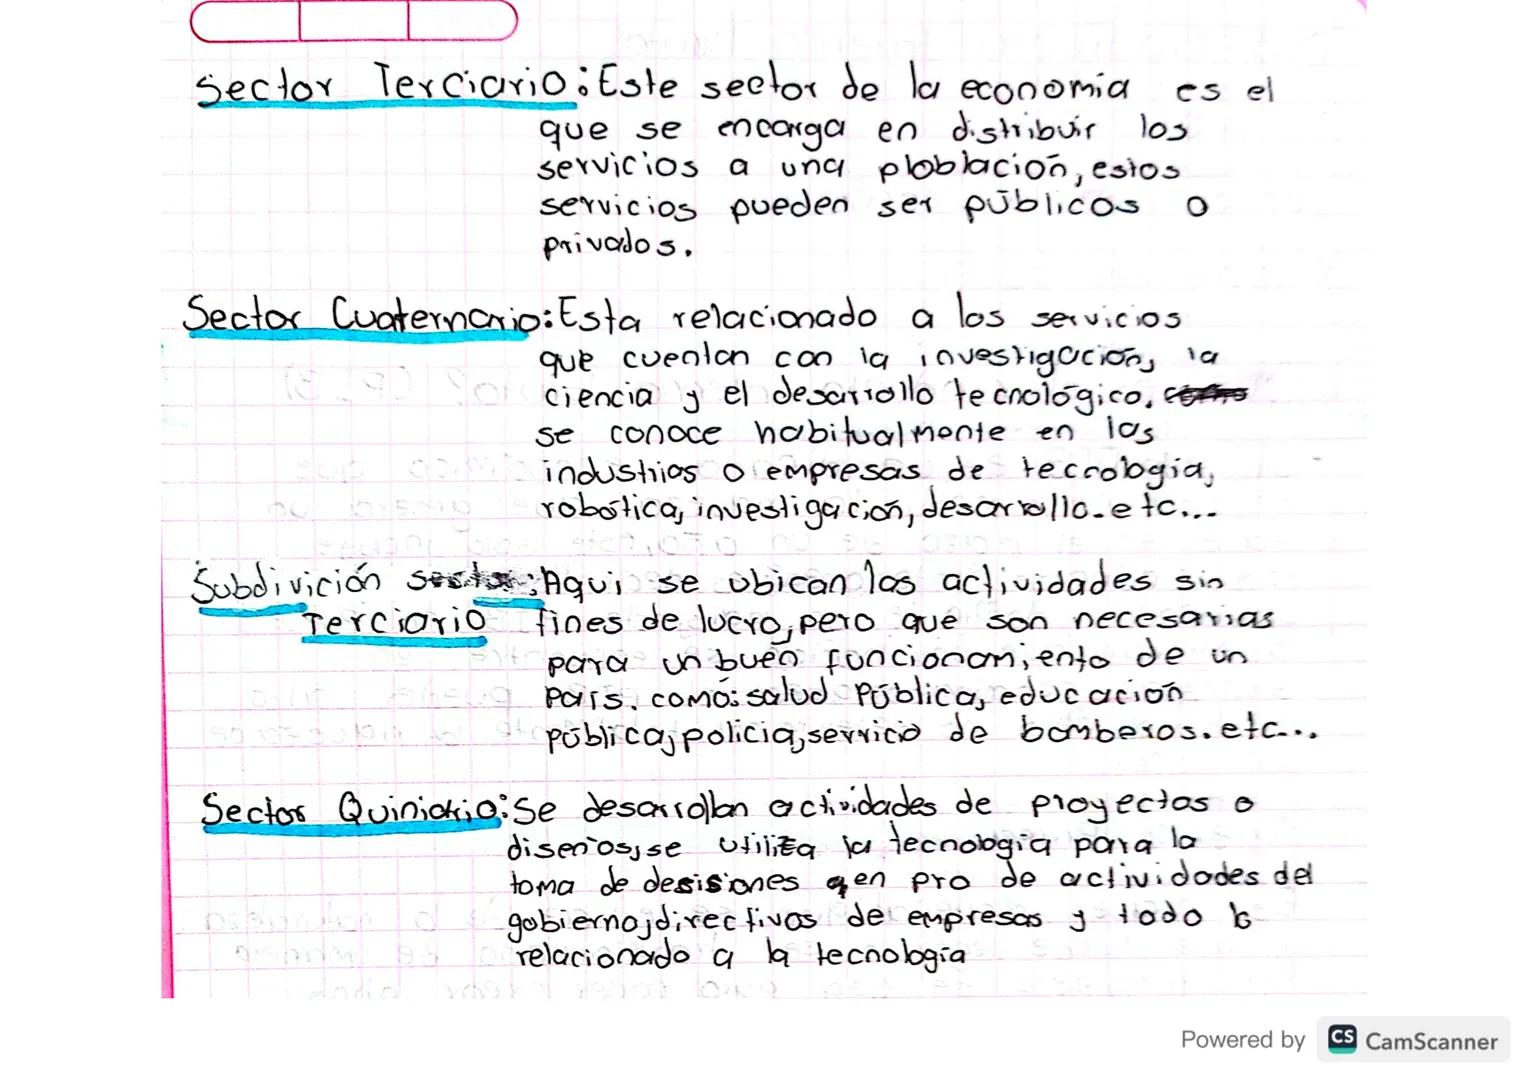 Sector Terciario: Este sector de la economía es el
que se encarga en distribuir los
servicios a una ploblación, estos
servicios pueden ser públicos o
privados.
Sector Cuaternario: Esta relacionado a los servicios
que cuentan con la investigación, la
ciencia y el desarrollo tecnológico.
se conoce habitualmente en las
industrias o empresas de tecnología,
robótica, investigación, desarrollo. etc...
Subdivición : Aqui se ubican las actividades sin
Terciario fines de lucro, pero que son necesarias
para un buen funcionamiento de un
País. como: salud Pública, educación
pública, policia, servicio de bomberos. etc...
Sector Quiniario: Se desarrollan actividades de proyectos o
diseños, se utiliza la tecnología para la
toma de desisiones en pro de actividades del
gobierno, directivos de empresas y todo lo
relacionado a la tecnología
Powered by CS CamScanner